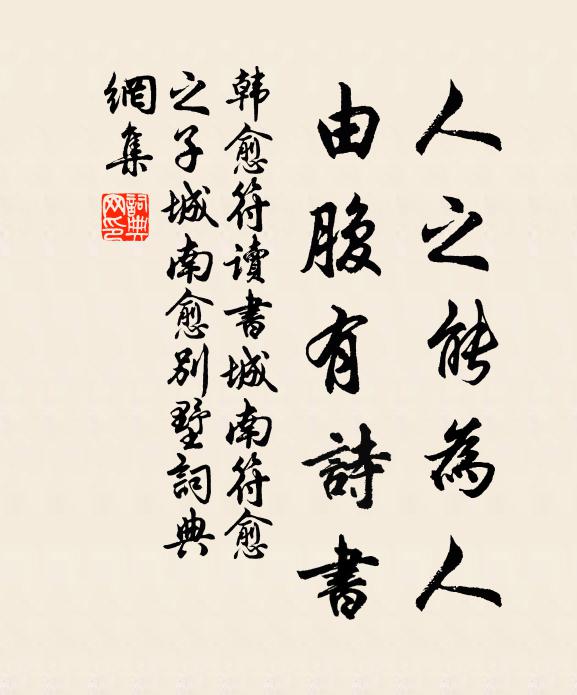 人之能為人
由腹有詩書
韩愈符讀書城南符愈
之子城南愈别墅詞典
網集
詞典网印